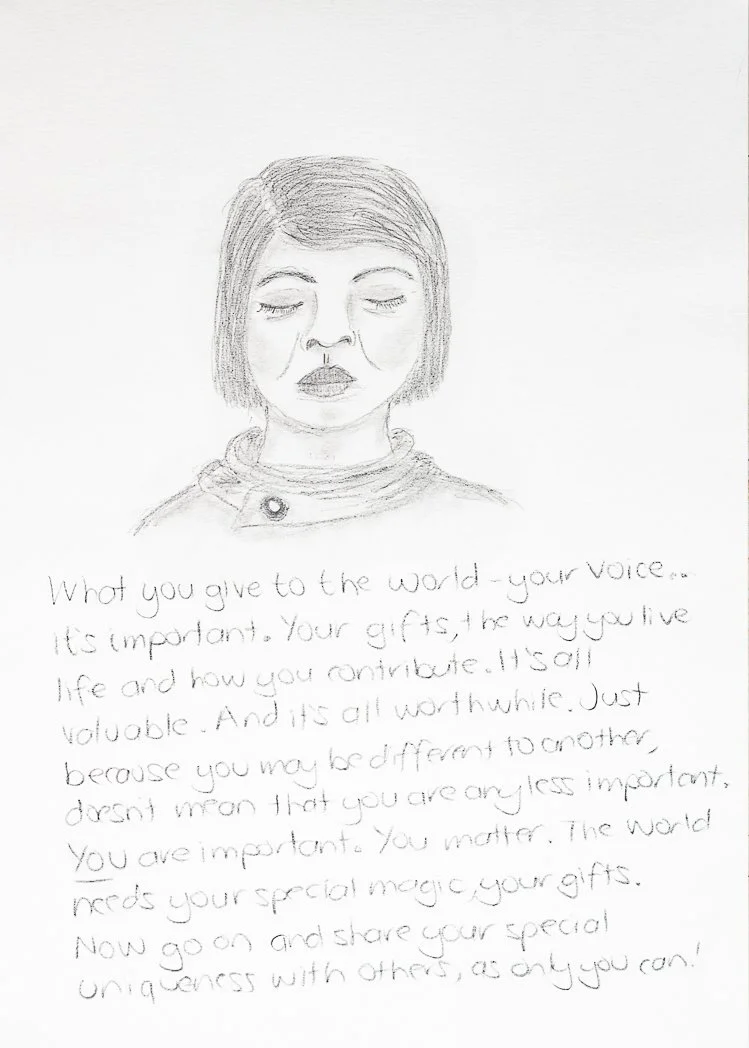 What you give to the world - your voice..
It's important. Your gifts, the way you live
life and how you contribute. It's all
valuable. And it's all worthwhile. Just
because you may be different to another,
doesn't mean that you are any less important.
You are important. You matter. The world
needs your special magic, your gifts.
Now go on and share your special
uniqueness with others, as only you can!